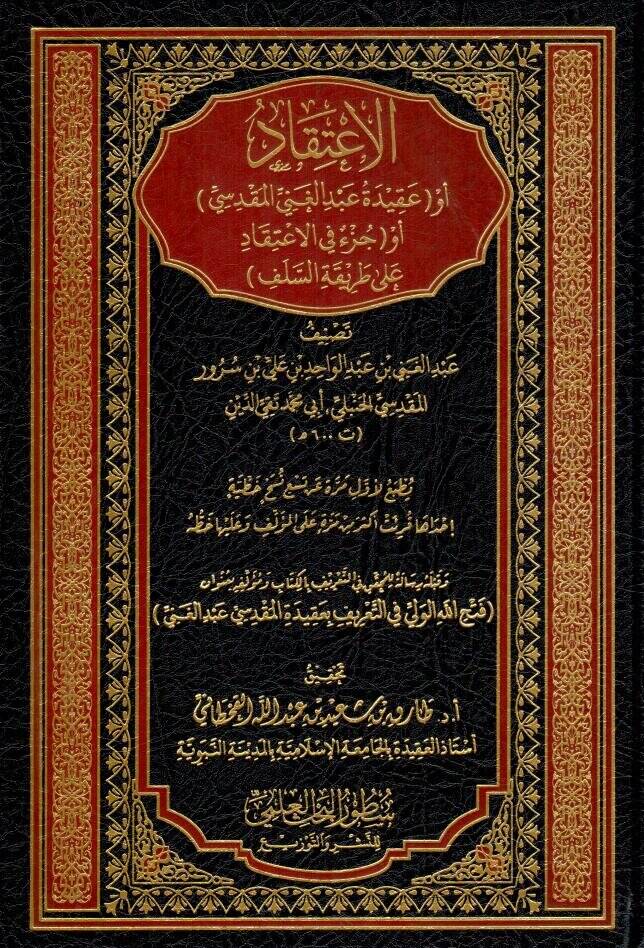 الاعتقاد
أو (عقيدة عبد الغني المقدسي)
أو (جزء في الاعتقاد
على طريقة السلف)
تصنيف
عبد الغني بن عبد الواحد بن علي بن سرور
المقدسي الحنبلي، أبي محمد تقي الدين
(ت ٦٠٠ هـ)
يطبع لأول مرة عن تسع نسخ خطية
إحداها قرئت أكثر من مرة على المؤلف وعليها خطه
وقبله رسالة للمحقق في التعريف بالكتاب ومؤلفه بعنوان
(فتح الله الولي في التعريف بعقيدة المقدسي عبد الغني)
تحقيق
أ.د. طارق بن سعيد بن عبد الله القحطاني
أستاذ العقيدة بالجامعة الإسلامية بالمدينة النبوية
العلمي
للنشر والتوزيع